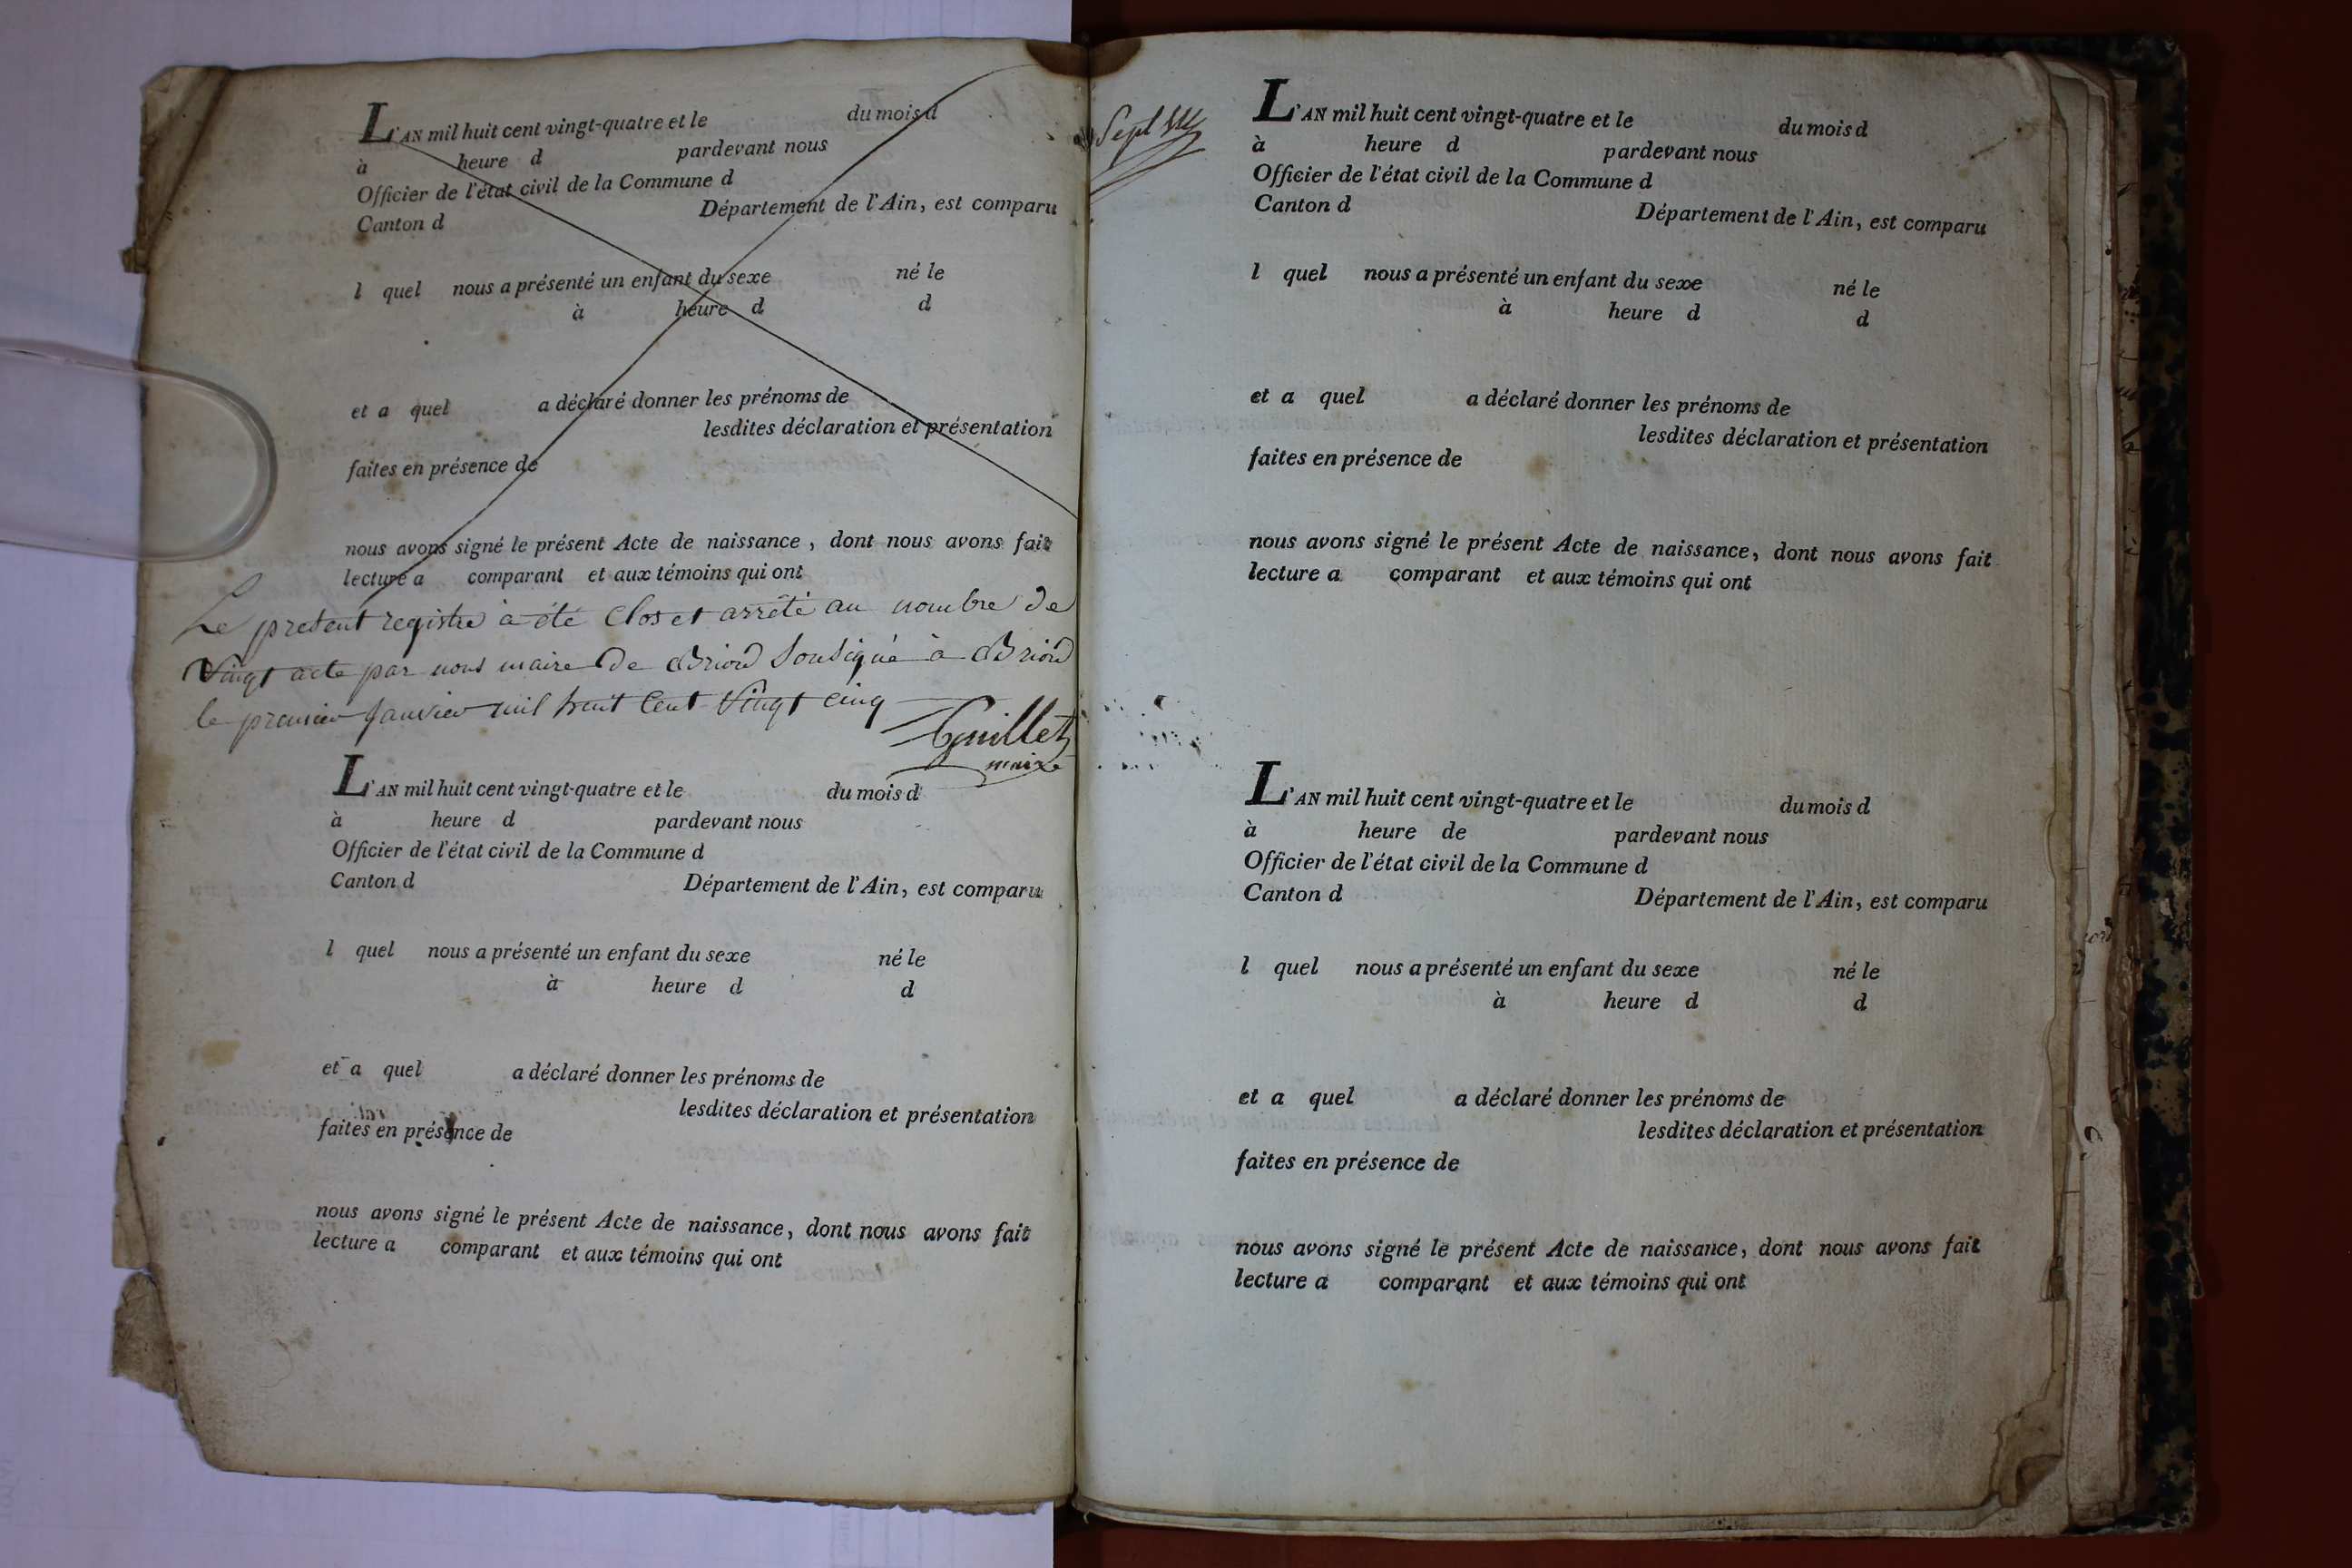 L'AN mil huit cent vingt-quatre et le du mois d
à heure d pardevant nous
Officier de l'état civil de la Commune d
Canton d Département de l'Ain, est comparu
l quel nous a présenté un enfant du sexe né le
à heure d d
et a quel a déclaré donner les prénoms de
lesdites déclaration et présentation
faites en présence de
nous avons signé le présent Acte de naissance, dont nous avons fait
lecture a comparant et aux témoins qui ont
Le present registre à été clos et arrêté au nombre de
Vingt acte par nous maire de Briord Soussigné à Briord
le premier Janvier mil huit Cent Vingt cinq
maire
L'AN mil huit cent vingt-quatre et le du mois d
à heure d pardevant nous
Officier de l'état civil de la Commune d
Canton d Département de l'Ain, est comparu
l quel nous a présenté un enfant du sexe né le
à heure d d
et a quel a déclaré donner les prénoms de
lesdites déclaration et présentation
faites en présence de
nous avons signé le présent Acte de naissance, dont nous avons fait
lecture a comparant et aux témoins qui ont
Sept
L'AN mil huit cent vingt-quatre et le du mois d
à heure d pardevant nous
Officier de l'état civil de la Commune d
Canton d Département de l'Ain, est comparu
l quel nous a présenté un enfant du sexe né le
à heure d d
et a quel a déclaré donner les prénoms de
lesdites déclaration et présentation
faites en présence de
nous avons signé le présent Acte de naissance, dont nous avons fait
lecture a comparant et aux témoins qui ont
L'AN mil huit cent vingt-quatre et le du mois d
à heure de pardevant nous
Officier de l'état civil de la Commune d
Canton d Département de l'Ain, est comparu
l quel nous a présenté un enfant du sexe né le
à heure d d
et a quel a déclaré donner les prénoms de
lesdites déclaration et présentation
faites en présence de
nous avons signé le présent Acte de naissance, dont nous avons fait
lecture a comparant et aux témoins qui ont